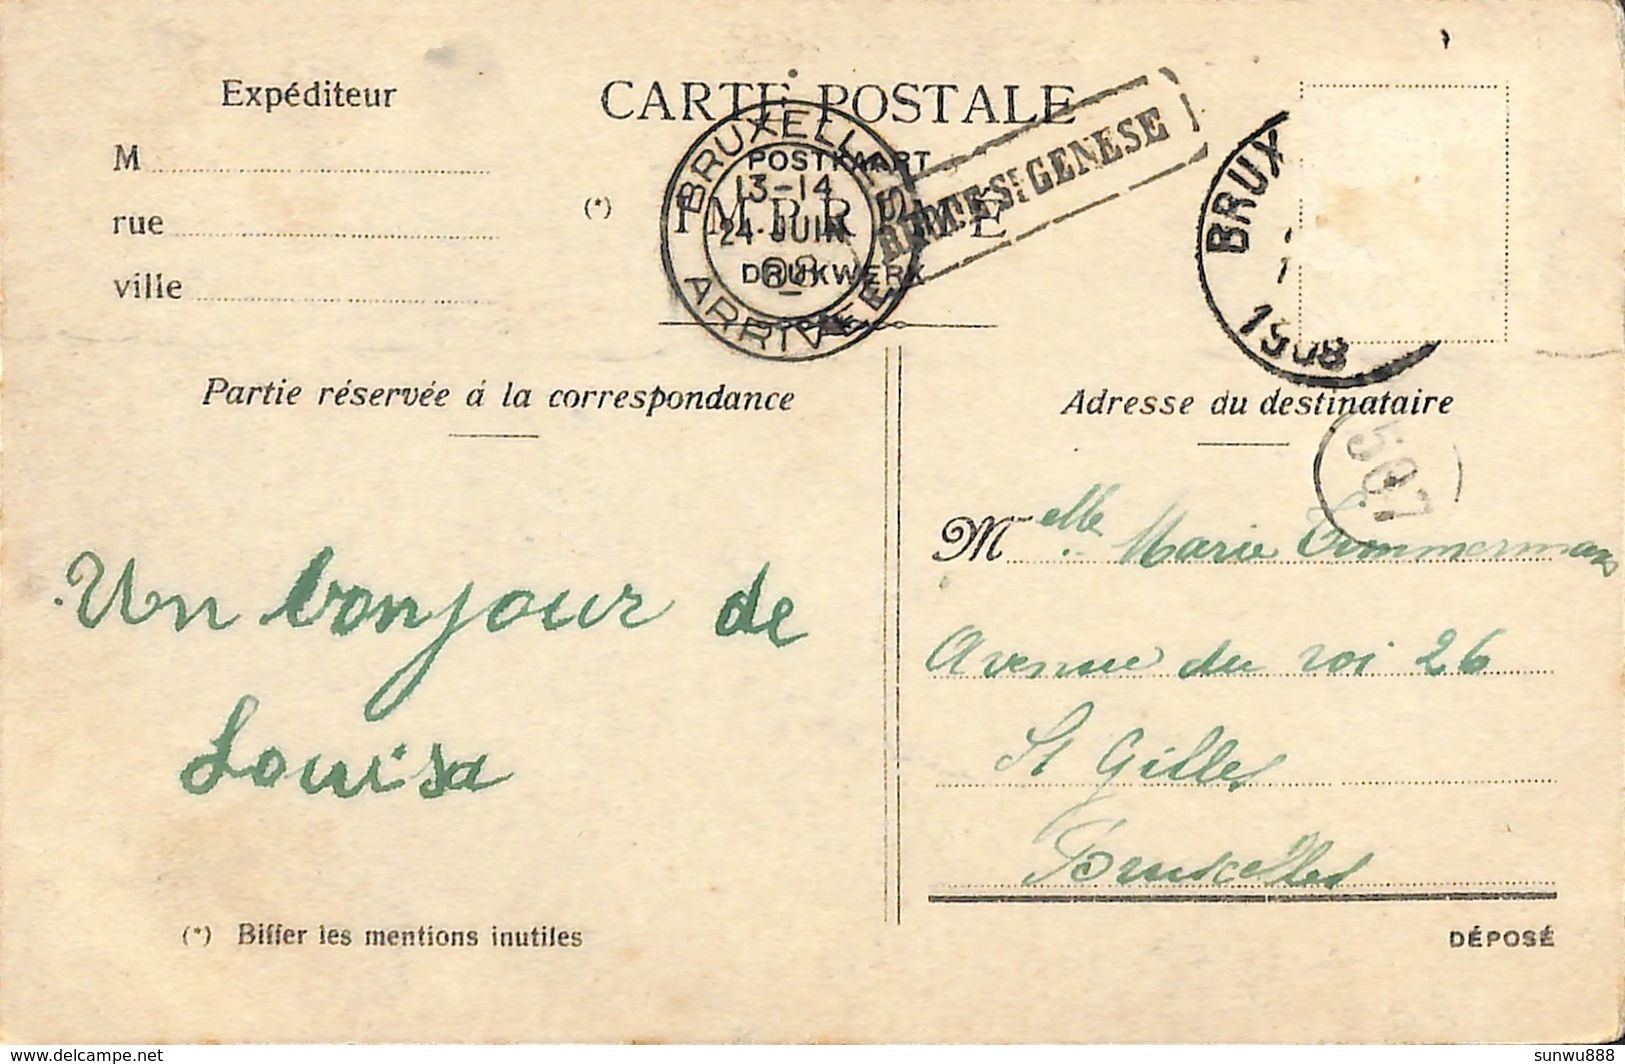 Expéditeur
M
rue
ville
CARTE POSTALE
POSTKAART
(*) IMPRIMÉ
DRUKWERK
BRUXELLES
13-14
24 JUIN
08
ARRIVÉE
RHODE-St GENESE
BRUX
1908
Partie réservée á la correspondance
Adresse du destinataire
507
Un bonjour de
Louisa
Melle Marie Timmermans
Avenue du roi 26
St Gilles
Bruxelles
(*) Biffer les mentions inutiles
DÉPOSÉ
www.delcampe.net
sunwu888